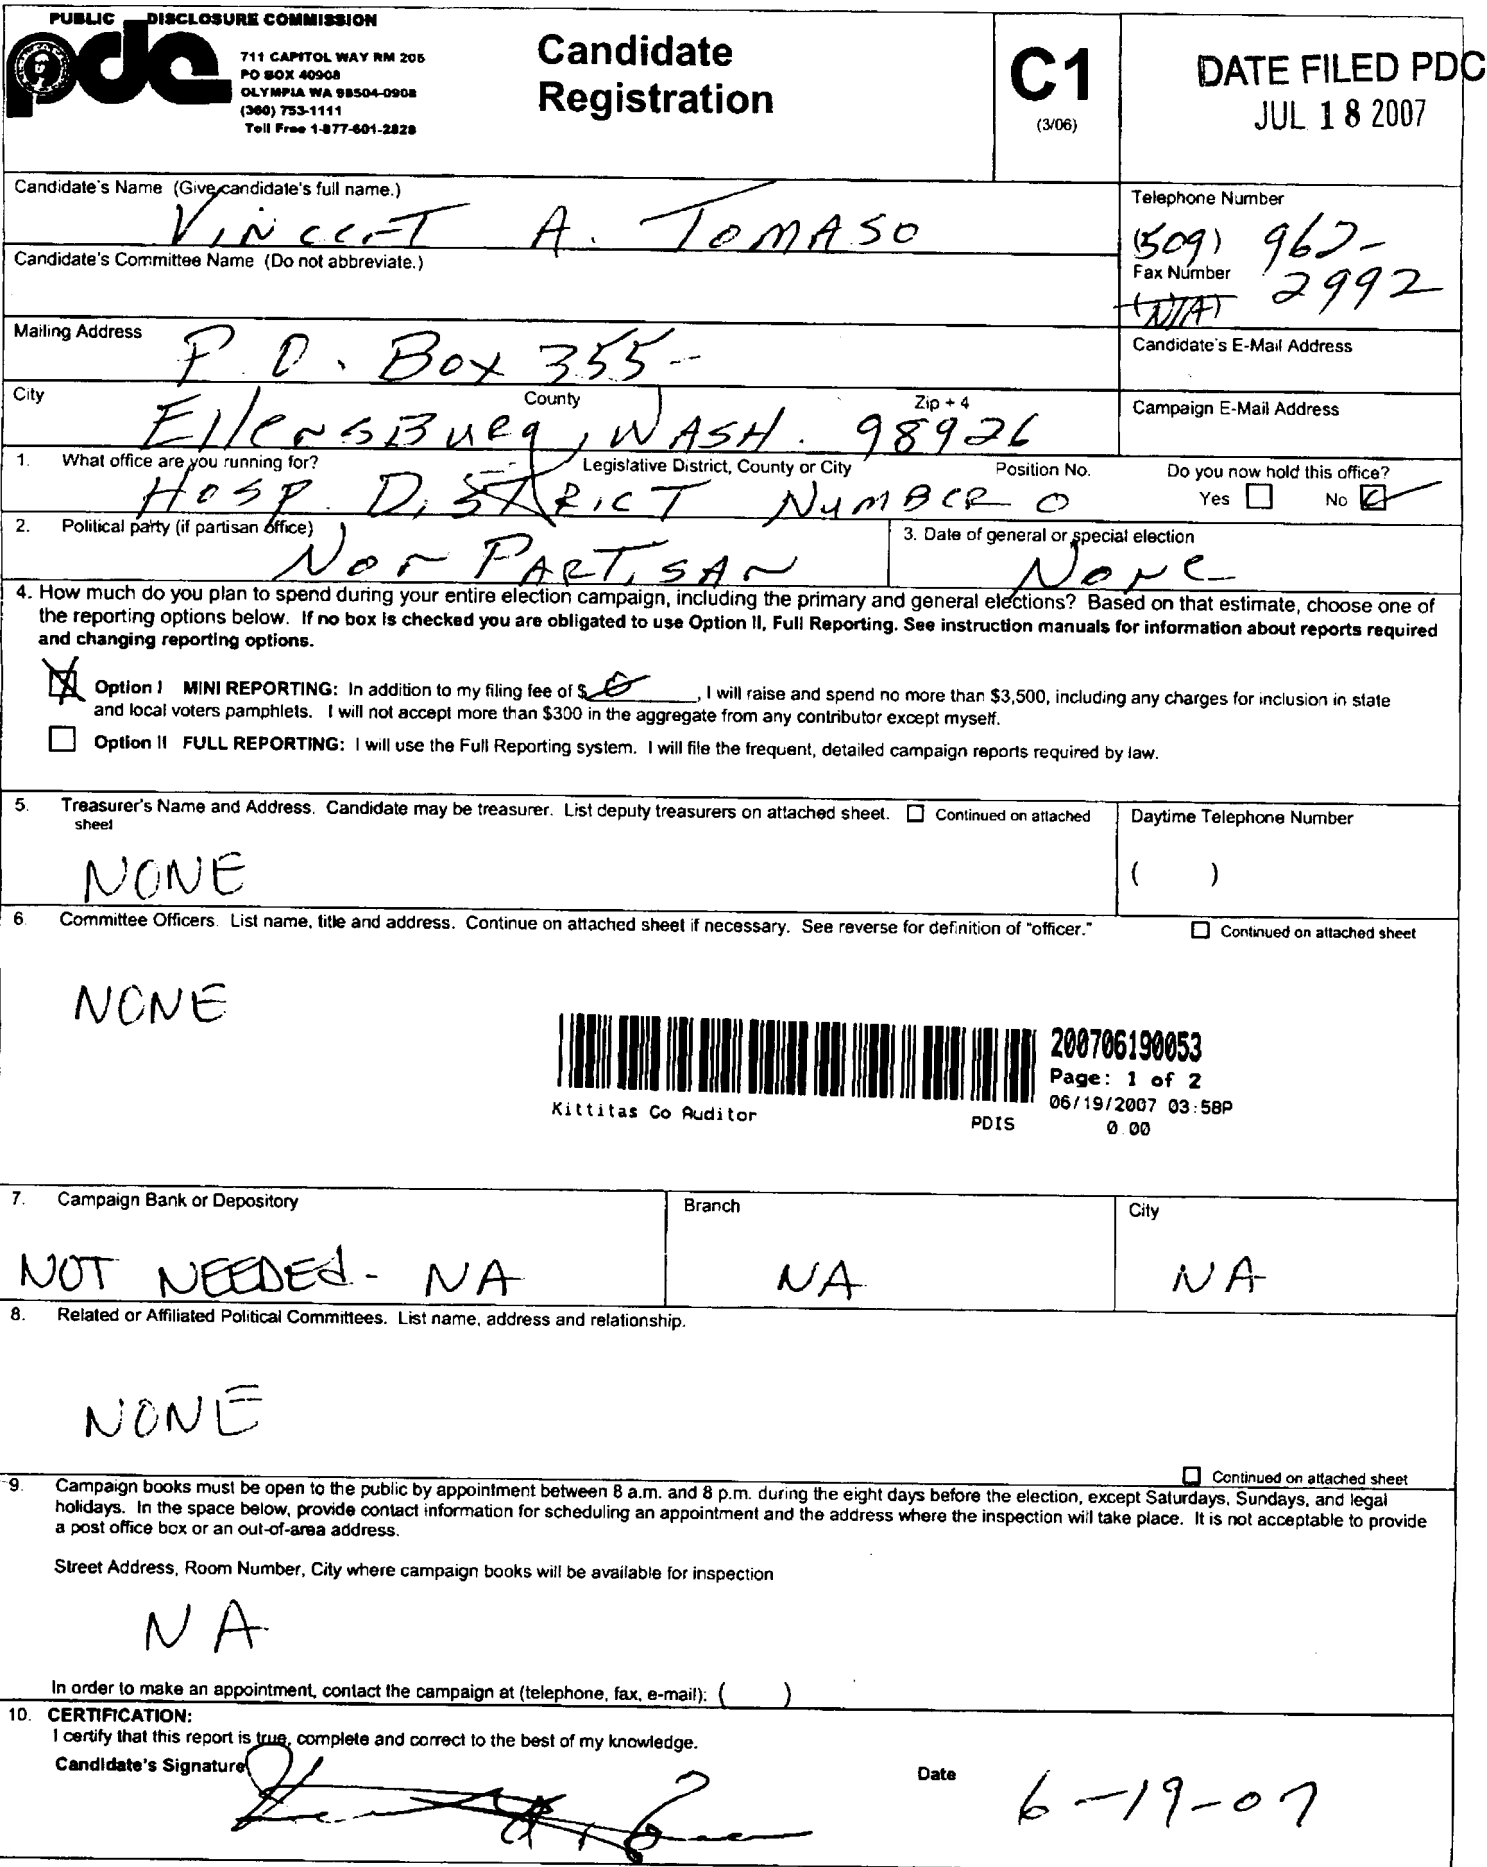 PUBLIC DISCLOSURE COMMISSION
pdc
711 CAPITOL WAY RM 206
PO BOX 40908
OLYMPIA WA 98504-0908
(360) 753-1111
Toll Free 1-877-601-2828
Candidate
Registration
C1
(3/06)
DATE FILED PDC
JUL 18 2007
Candidate's Name (Give candidate's full name.)
VINCENT A. TOMASO
Telephone Number
(509) 962-
2992
Candidate's Committee Name (Do not abbreviate.)
Fax Number
(N/A)
Mailing Address
P.O. Box 355
Candidate's E-Mail Address
City
County
Zip + 4
EllensBurg, WASH. 98926
Campaign E-Mail Address
1. What office are you running for?
Legislative District, County or City
Position No.
Do you now hold this office?
HOSP. DISTRICT NUMBER
Yes
No
2. Political party (if partisan office)
Non PARTISAN
3. Date of general or special election
None
4. How much do you plan to spend during your entire election campaign, including the primary and general elections? Based on that estimate, choose one of
the reporting options below. If no box is checked you are obligated to use Option II, Full Reporting. See instruction manuals for information about reports required
and changing reporting options.
Option I MINI REPORTING: In addition to my filing fee of $ 0, I will raise and spend no more than $3,500, including any charges for inclusion in state
and local voters pamphlets. I will not accept more than $300 in the aggregate from any contributor except myself.
Option II FULL REPORTING: I will use the Full Reporting system. I will file the frequent, detailed campaign reports required by law.
5. Treasurer's Name and Address. Candidate may be treasurer. List deputy treasurers on attached sheet. Continued on attached
sheet
Daytime Telephone Number
NONE
( )
6. Committee Officers. List name, title and address. Continue on attached sheet if necessary. See reverse for definition of "officer."
Continued on attached sheet
NONE
200706190053
Page: 1 of 2
06/19/2007 03:58P
Kittitas Co Auditor
PDIS
0.00
7. Campaign Bank or Depository
Branch
City
NOT NEEDEd - NA
NA
NA
8. Related or Affiliated Political Committees. List name, address and relationship.
NONE
Continued on attached sheet
9. Campaign books must be open to the public by appointment between 8 a.m. and 8 p.m. during the eight days before the election, except Saturdays, Sundays, and legal
holidays. In the space below, provide contact information for scheduling an appointment and the address where the inspection will take place. It is not acceptable to provide
a post office box or an out-of-area address.
Street Address, Room Number, City where campaign books will be available for inspection
NA
In order to make an appointment, contact the campaign at (telephone, fax, e-mail): ( )
10. CERTIFICATION:
I certify that this report is true, complete and correct to the best of my knowledge.
Candidate's Signature
Date
6-19-07